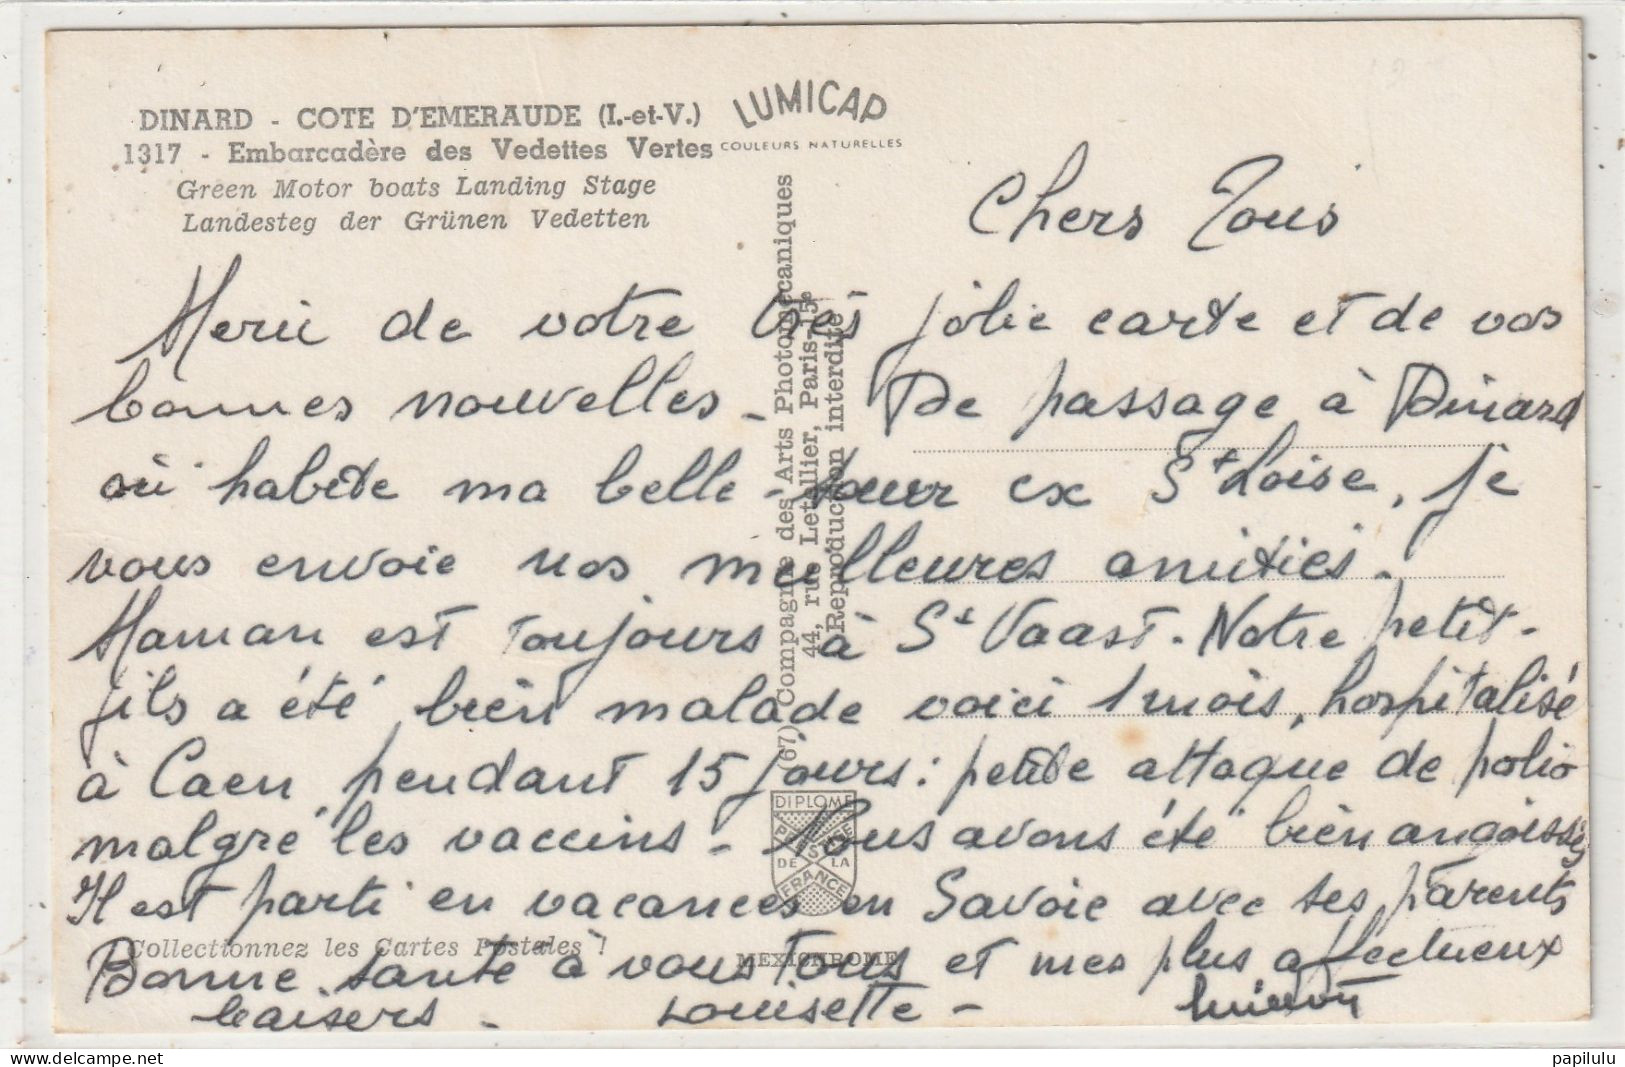 DINARD - COTE D'EMERAUDE (I.-et-V.)
1317 - Embarcadère des Vedettes Vertes
Green Motor boats Landing Stage
Landesteg der Grünen Vedetten
LUMICAP
COULEURS NATURELLES
(67) Compagnie des Arts Photomécaniques
44, rue Letellier, Paris-15e
Reproduction interdite
Chers Tous
Merci de votre très jolie carte et de vos
bonnes nouvelles - De passage à Dinard
où habite ma belle-soeur ex St Loise, je
vous envoie nos meilleures amitiés.
Maman est toujours à St Vaast. Notre petit-
fils a été bien malade voici 1 mois, hospitalisé
à Caen pendant 15 jours : petite attaque de polio
malgré les vaccins - Nous avons été bien angoissés
Il est parti en vacances en Savoie avec ses parents
Bonne santé à vous tous et mes plus affectueux
baisers - Louisette -
DIPLOME
PRESTIGE
DE LA
FRANCE
Collectionnez les Cartes Postales !
MEXICHROME
papilulu